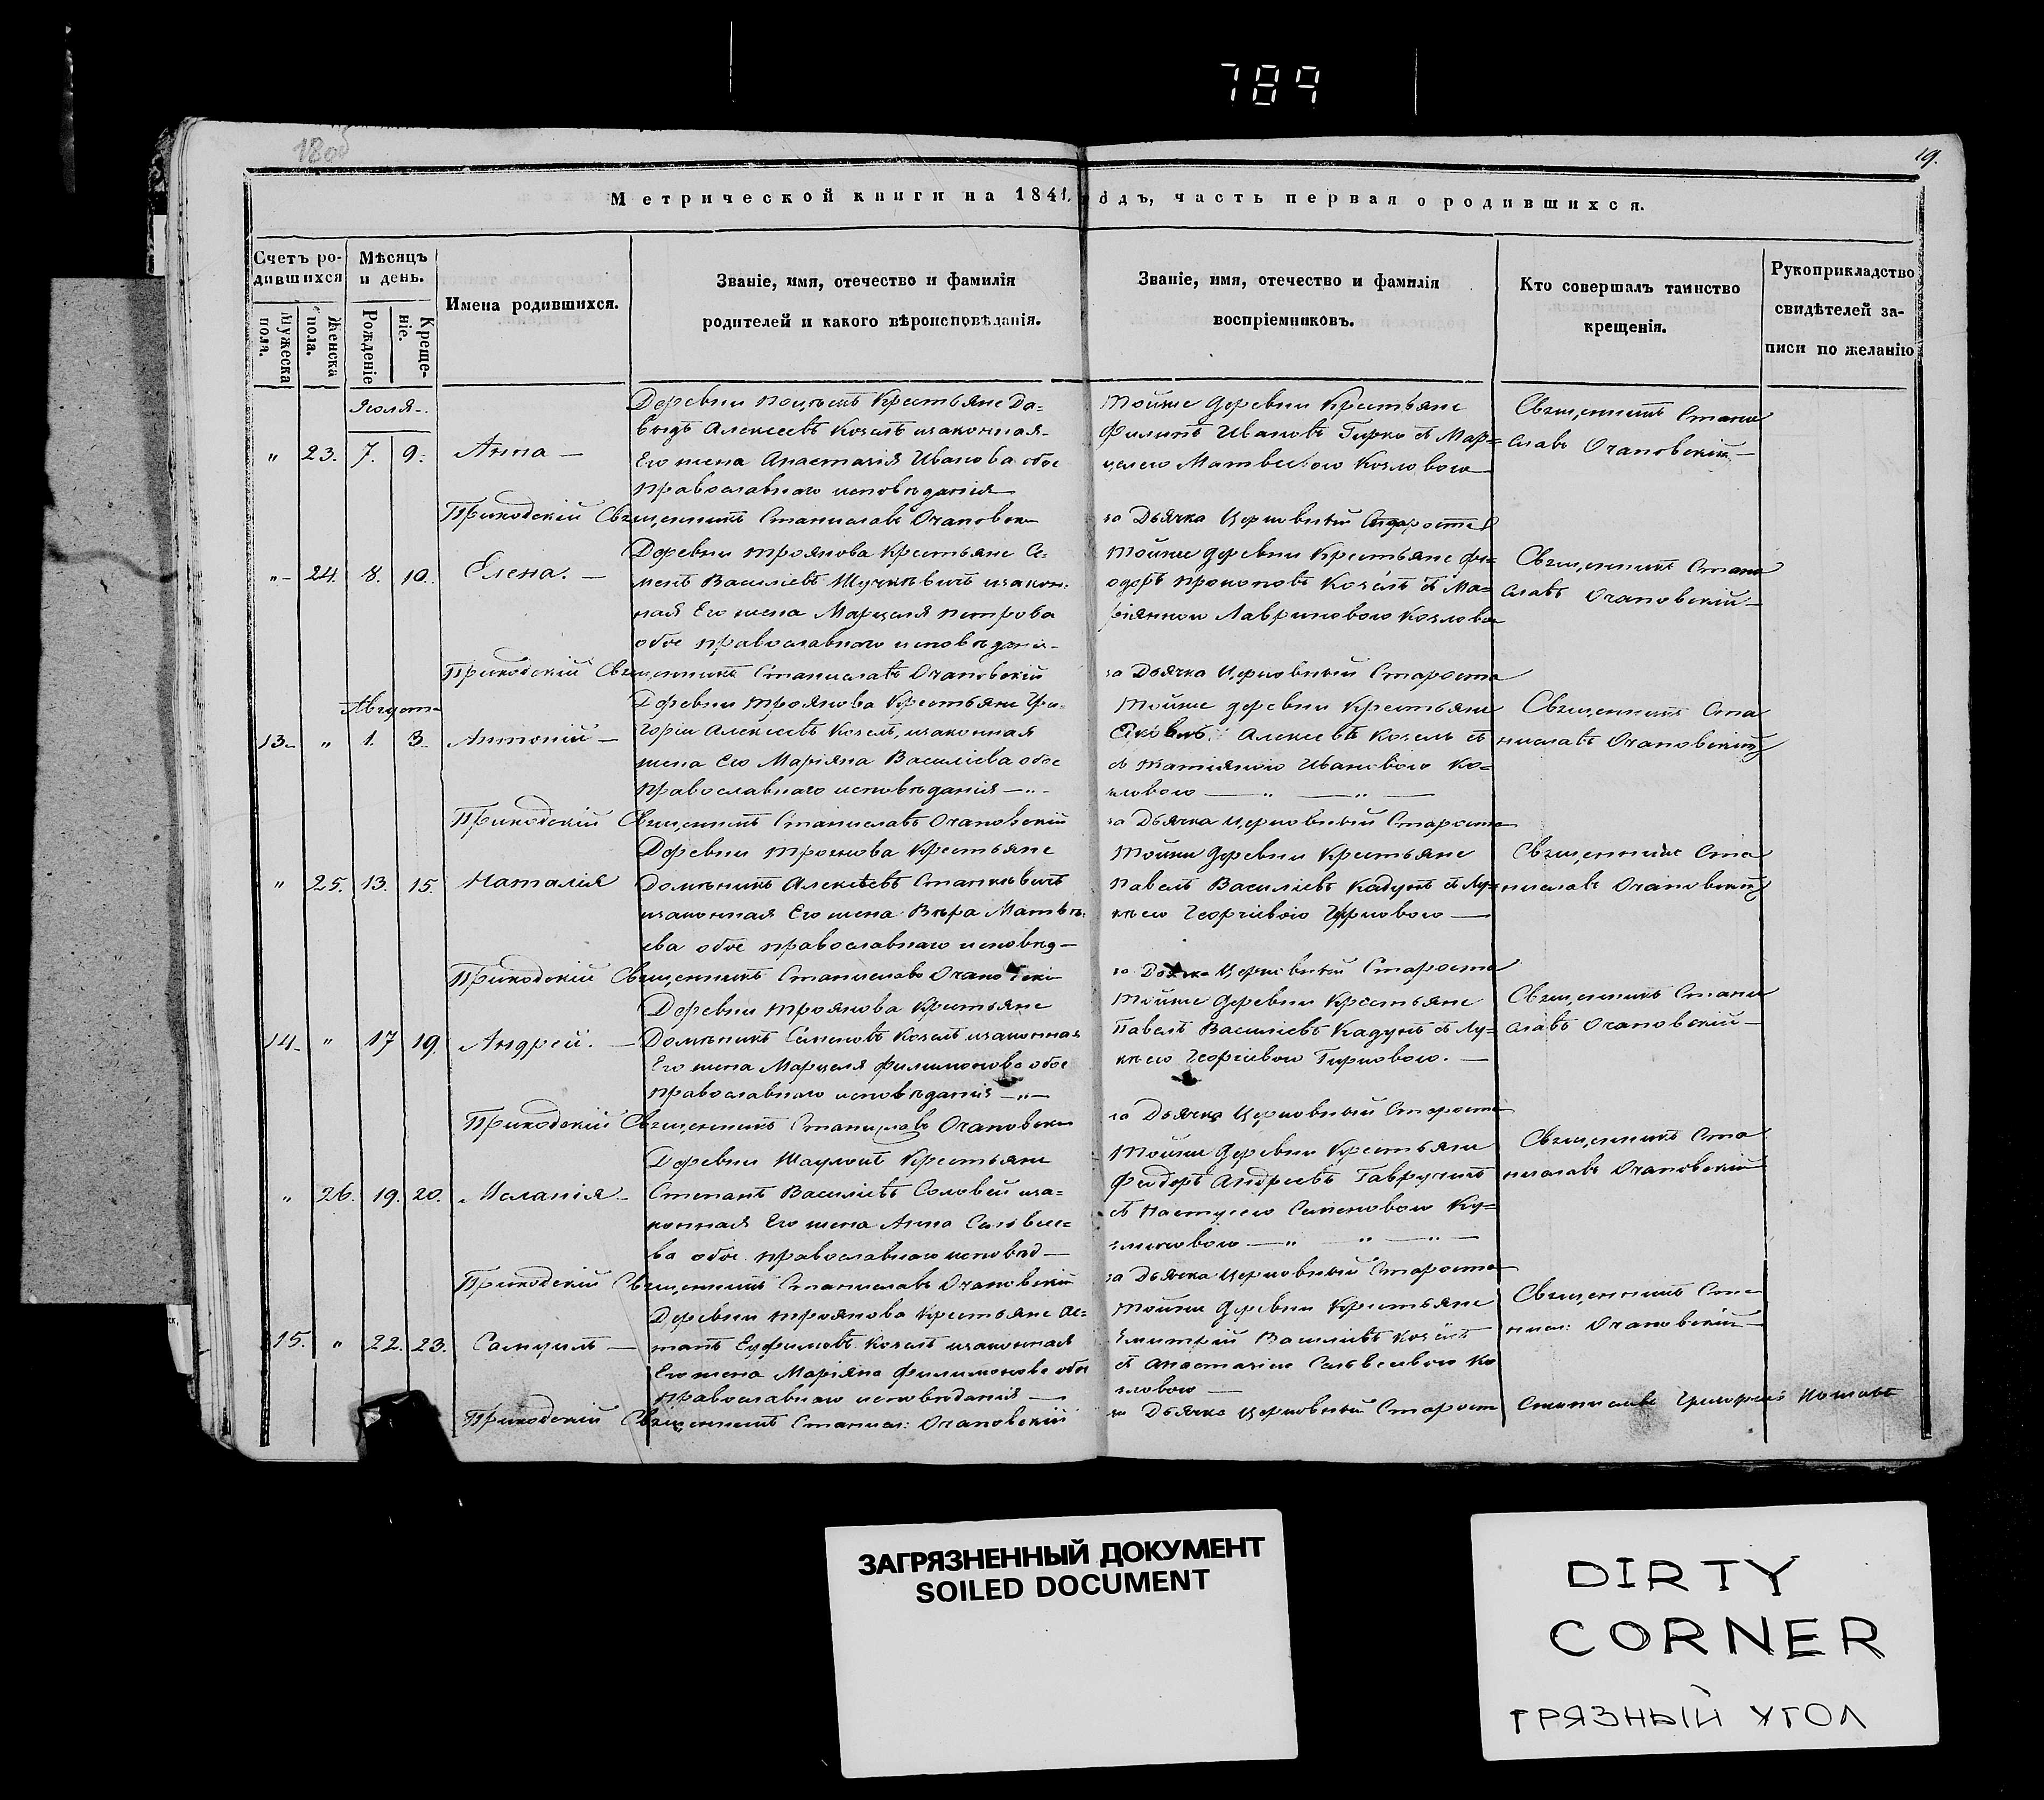 789
18об
19.
Метрической книги на 1841, годъ, часть первая о родившихся.
Счетъ родившихся
Мужеска пола.
Женска пола.
Мѣсяцъ и день.
Рожденіе
Крещеніе.
Имена родившихся.
Званіе, имя, отечество и фамилія
родителей и какого вѣроисповѣданія.
Званіе, имя, отечество и фамилія
воспріемниковъ.
Кто совершалъ таинство
крещенія.
Рукоприкладство
свидѣтелей за-
писи по желанію
Іюля
„ 23. 7. 9. Анна —
Деревни крестьяне Да=
выдъ Алексеевъ Козелъ изаконная
Его жена Анастазія Иванова обое
православнаго исповѣданія
Тойже деревни Крестьяне
Филипъ Ивановъ Гирко съ Мар=
целею Матвеевою Козловою
Священникъ Стани
славъ Очаповскій —
Приходскій Священникъ Станиславъ Очаповски
за Дьячка Церковный Староста
„ 24. 8. 10. Елена. —
Деревни Троянова Крестьяне Се=
менъ Василіевъ изакон:
ная Его жена Марцеля Петрова
обое православнаго исповѣдані-
Тойже деревни Крестьяне Фе=
одоръ Прокоповъ Козелъ съ Ма=
ріянною Лавриновою Козлово
Священникъ Стани
славъ Очаповскій —
Приходскій Священникъ Станиславъ Очаповскій
за Дьячка Церковный Староста
Августа
13. „ 1. 3. Антоній —
Деревни Троянова Крестьяне Гри=
горій Алексеевъ Козелъ, изаконная
жена Его Маріяна Василіева обое
православнаго исповѣданія — „ -
Тойже деревни Крестьяне
Яковъ Алексеевъ Козелъ съ
съ Татіяною Ивановою Ко=
зловою — „ — „ —
Священникъ Ста
ниславъ Очаповскій
Приходскій Священникъ Станиславъ Очаповскій
за Дьячка Церковный Староста
„ 25. 13. 15. Наталія
Деревни Троянова Крестьяне
Домѣникъ Алексѣевъ Станкѣвичъ
изаконная Его жена Вѣра Матвѣ=
ева обое православнаго исповѣд —
Тойже деревни Крестьяне
Павелъ Василіевъ Кадунъ съ Лу=
кѣею Георгіевою Гирковою —
Священникъ Ста
ниславъ Очаповскій
Приходскій Священникъ Станиславъ Очаповскі
за Дьячка Церковный Староста
14. „ 17 19. Андрей. —
Деревни Троянова Крестьяне
Домѣникъ Семеновъ Козелъ изаконная
Его жена Марцеля Филимонова обое
православнаго исповѣданія — „ —
Тойже деревни Крестьяне
Павелъ Василіевъ Кадунъ съ Лу=
кѣею Георгіевою Гирковою. —
Священникъ Стани
славъ Очаповскій —
Приходскій Священникъ Станиславъ Очаповски
за Дьячка Церковный Староста
„ 26. 19. 20. Меланія. —
Деревни Крестьяне
Степанъ Василіевъ Соловей иза=
конная Его жена Анна Савѣлие=
ва обое православнаго исповѣд —
Тойже деревни Крестьяне
Фёдоръ Андреевъ Гавручикъ
съ Настусею Семеновою Ку=
„ — „ —
Священникъ Ста
ниславъ Очаповскій
Приходскій Священникъ Станиславъ Очаповскій
за Дьячка Церковный Староста
15. „ 22. 23. Самуилъ —
Деревни Троянова Крестьяне Ос=
тапъ Еуфимовъ Козелъ изаконная
Его жена Маріяна Филимонова обое
православнаго исповѣданія —
Тойже деревни Крестьяне
Дмитрій Василіевъ Козелъ
съ Анастазіею Савѣлевою Ко
зловою —
Священникъ Ста
нисл: Очаповскій —
Приходскій Священникъ Станисл: Очаповскій
за Дьячка Церковный Старост Станиславъ
ЗАГРЯЗНЕННЫЙ ДОКУМЕНТ
SOILED DOCUMENT
DIRTY
CORNER
ГРЯЗНЫЙ УГОЛ